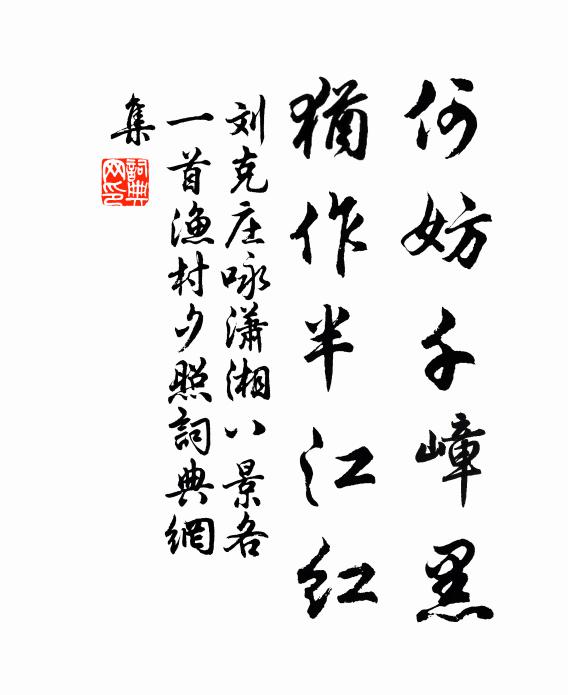 何妨千嶂黑
猶作半江红
刘克庄咏瀟湘八景各
一首漁村夕照詞典網
集
詞典
网印